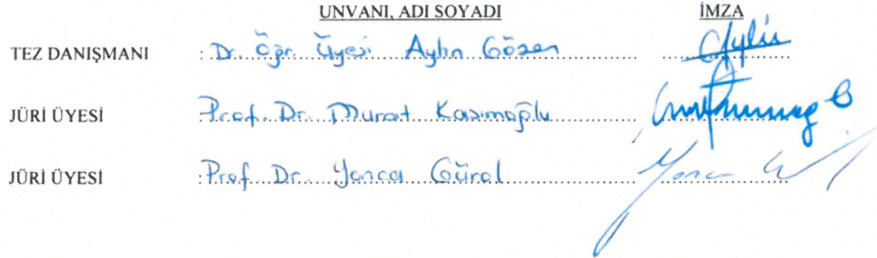 UNVANI, ADI SOYADI İMZA
TEZ DANIŞMANI : Dr. Öğr. Üyesi Aylin Gözen Aylin
JÜRİ ÜYESİ : Prof. Dr. Murat Kasımoğlu
JÜRİ ÜYESİ : Prof. Dr. Yonca Gürol Yonca